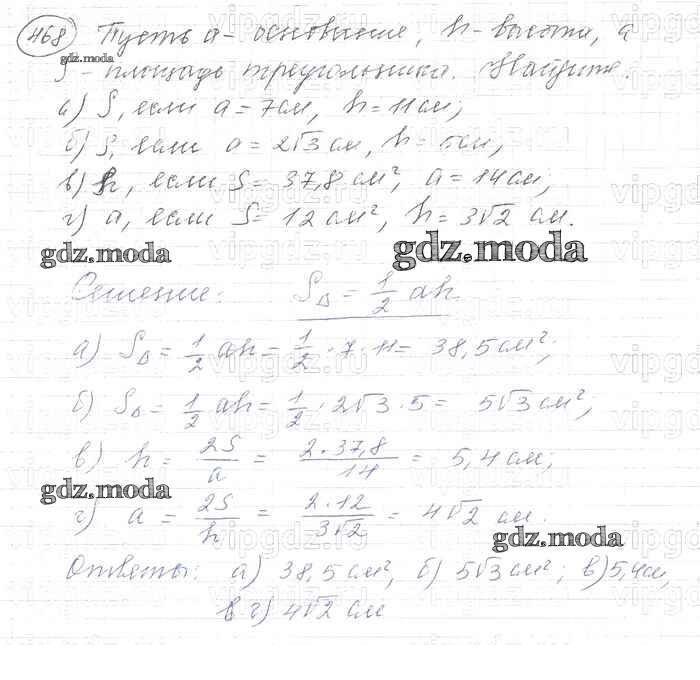 468 Пусть a - основание, h - высота, а
S - площадь треугольника. Найдите:
а) S, если a = 7см, h = 11см;
б) S, если a = 2√3 см, h = 5см;
в) h, если S = 37,8 см², a = 14см;
г) a, если S = 12 см², h = 3√2 см.
gdz.moda
gdz.moda gdz.moda
Решение: S△ = 1/2 ah
а) S△ = 1/2 ah = 1/2 · 7 · 11 = 38,5 см²;
б) S△ = 1/2 ah = 1/2 · 2√3 · 5 = 5√3 см²;
в) h = 2S/a = 2·37,8/14 = 5,4 см;
gdz.moda
г) a = 2S/h = 2·12/3√2 = 4√2 см.
gdz.moda
Ответы: а) 38,5 см², б) 5√3 см²; в) 5,4см,
г) 4√2 см